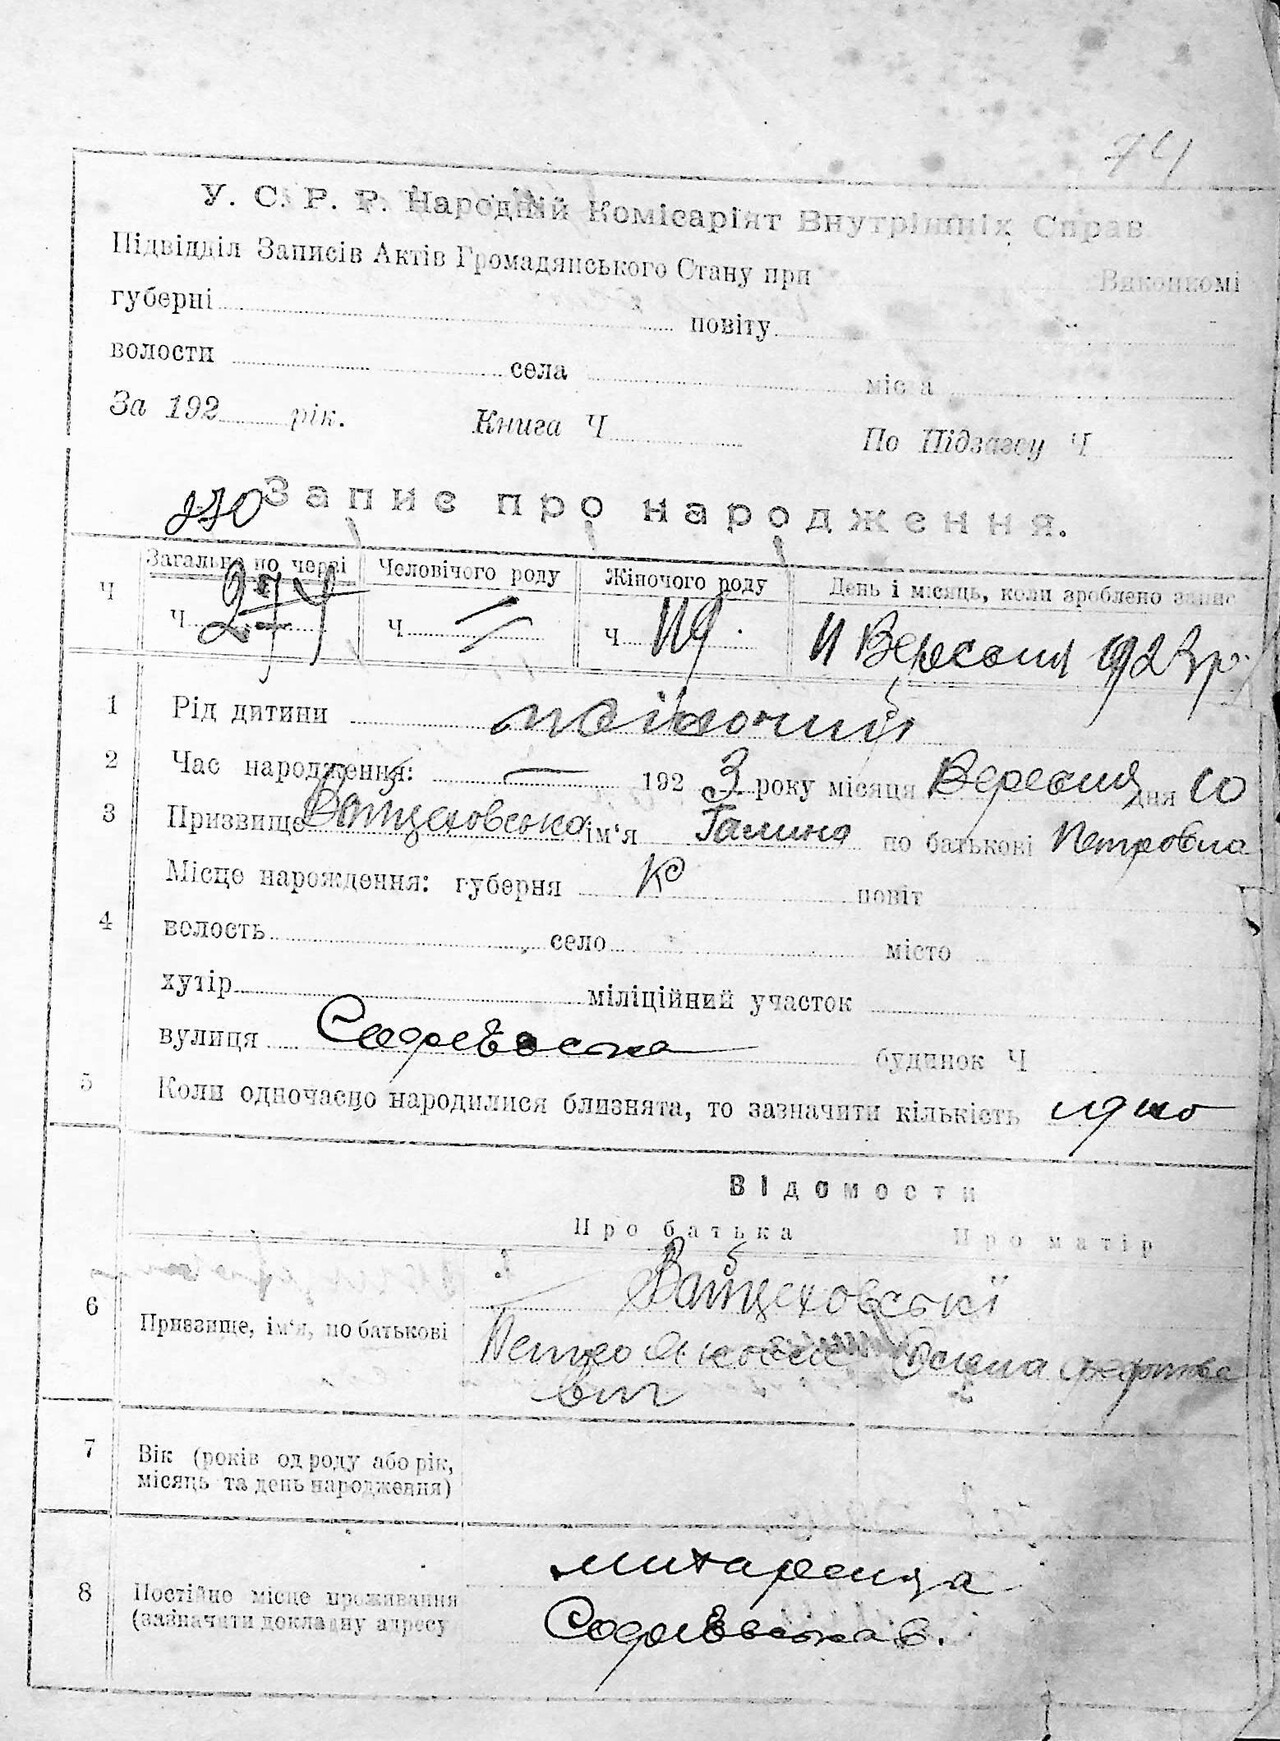 74
У. С. Р. Р. Народній Комісаріят Внутрішніх Справ.
Підвідділ Записів Актів Громадянського Стану при Виконкомі
губерні повіту
волости села міста
За 192 рік. Книга Ч По Підзагсу Ч
270 Запис про народження.
Ч Загальне по черзі Человічого роду Жіночого роду День і місяць, коли зроблено запис
Ч 274 Ч — Ч 119 11 Вересня 1923 р.
1 Рід дитини жіночий
2 Час народження: — 1923 року місяця Вересня дня 10
3 Призвище Войцеховська ім'я Галина по батькові Петровна
Місце нарождення: губерня К повіт
4 волость село місто
хутір міліційний участок
вулиця Софієвська будинок Ч
5 Коли одночасно народилися близнята, то зазначити кількість одно
Відомости
Про батька Про матір
6 Призвище, ім'я, по батькові Войцеховські
Петро Якове
вич
7 Вік (років од роду або рік,
місяць та день народження)
8 Постійно місце проживання
(зазначити докладну адресу
Софієвська 6.